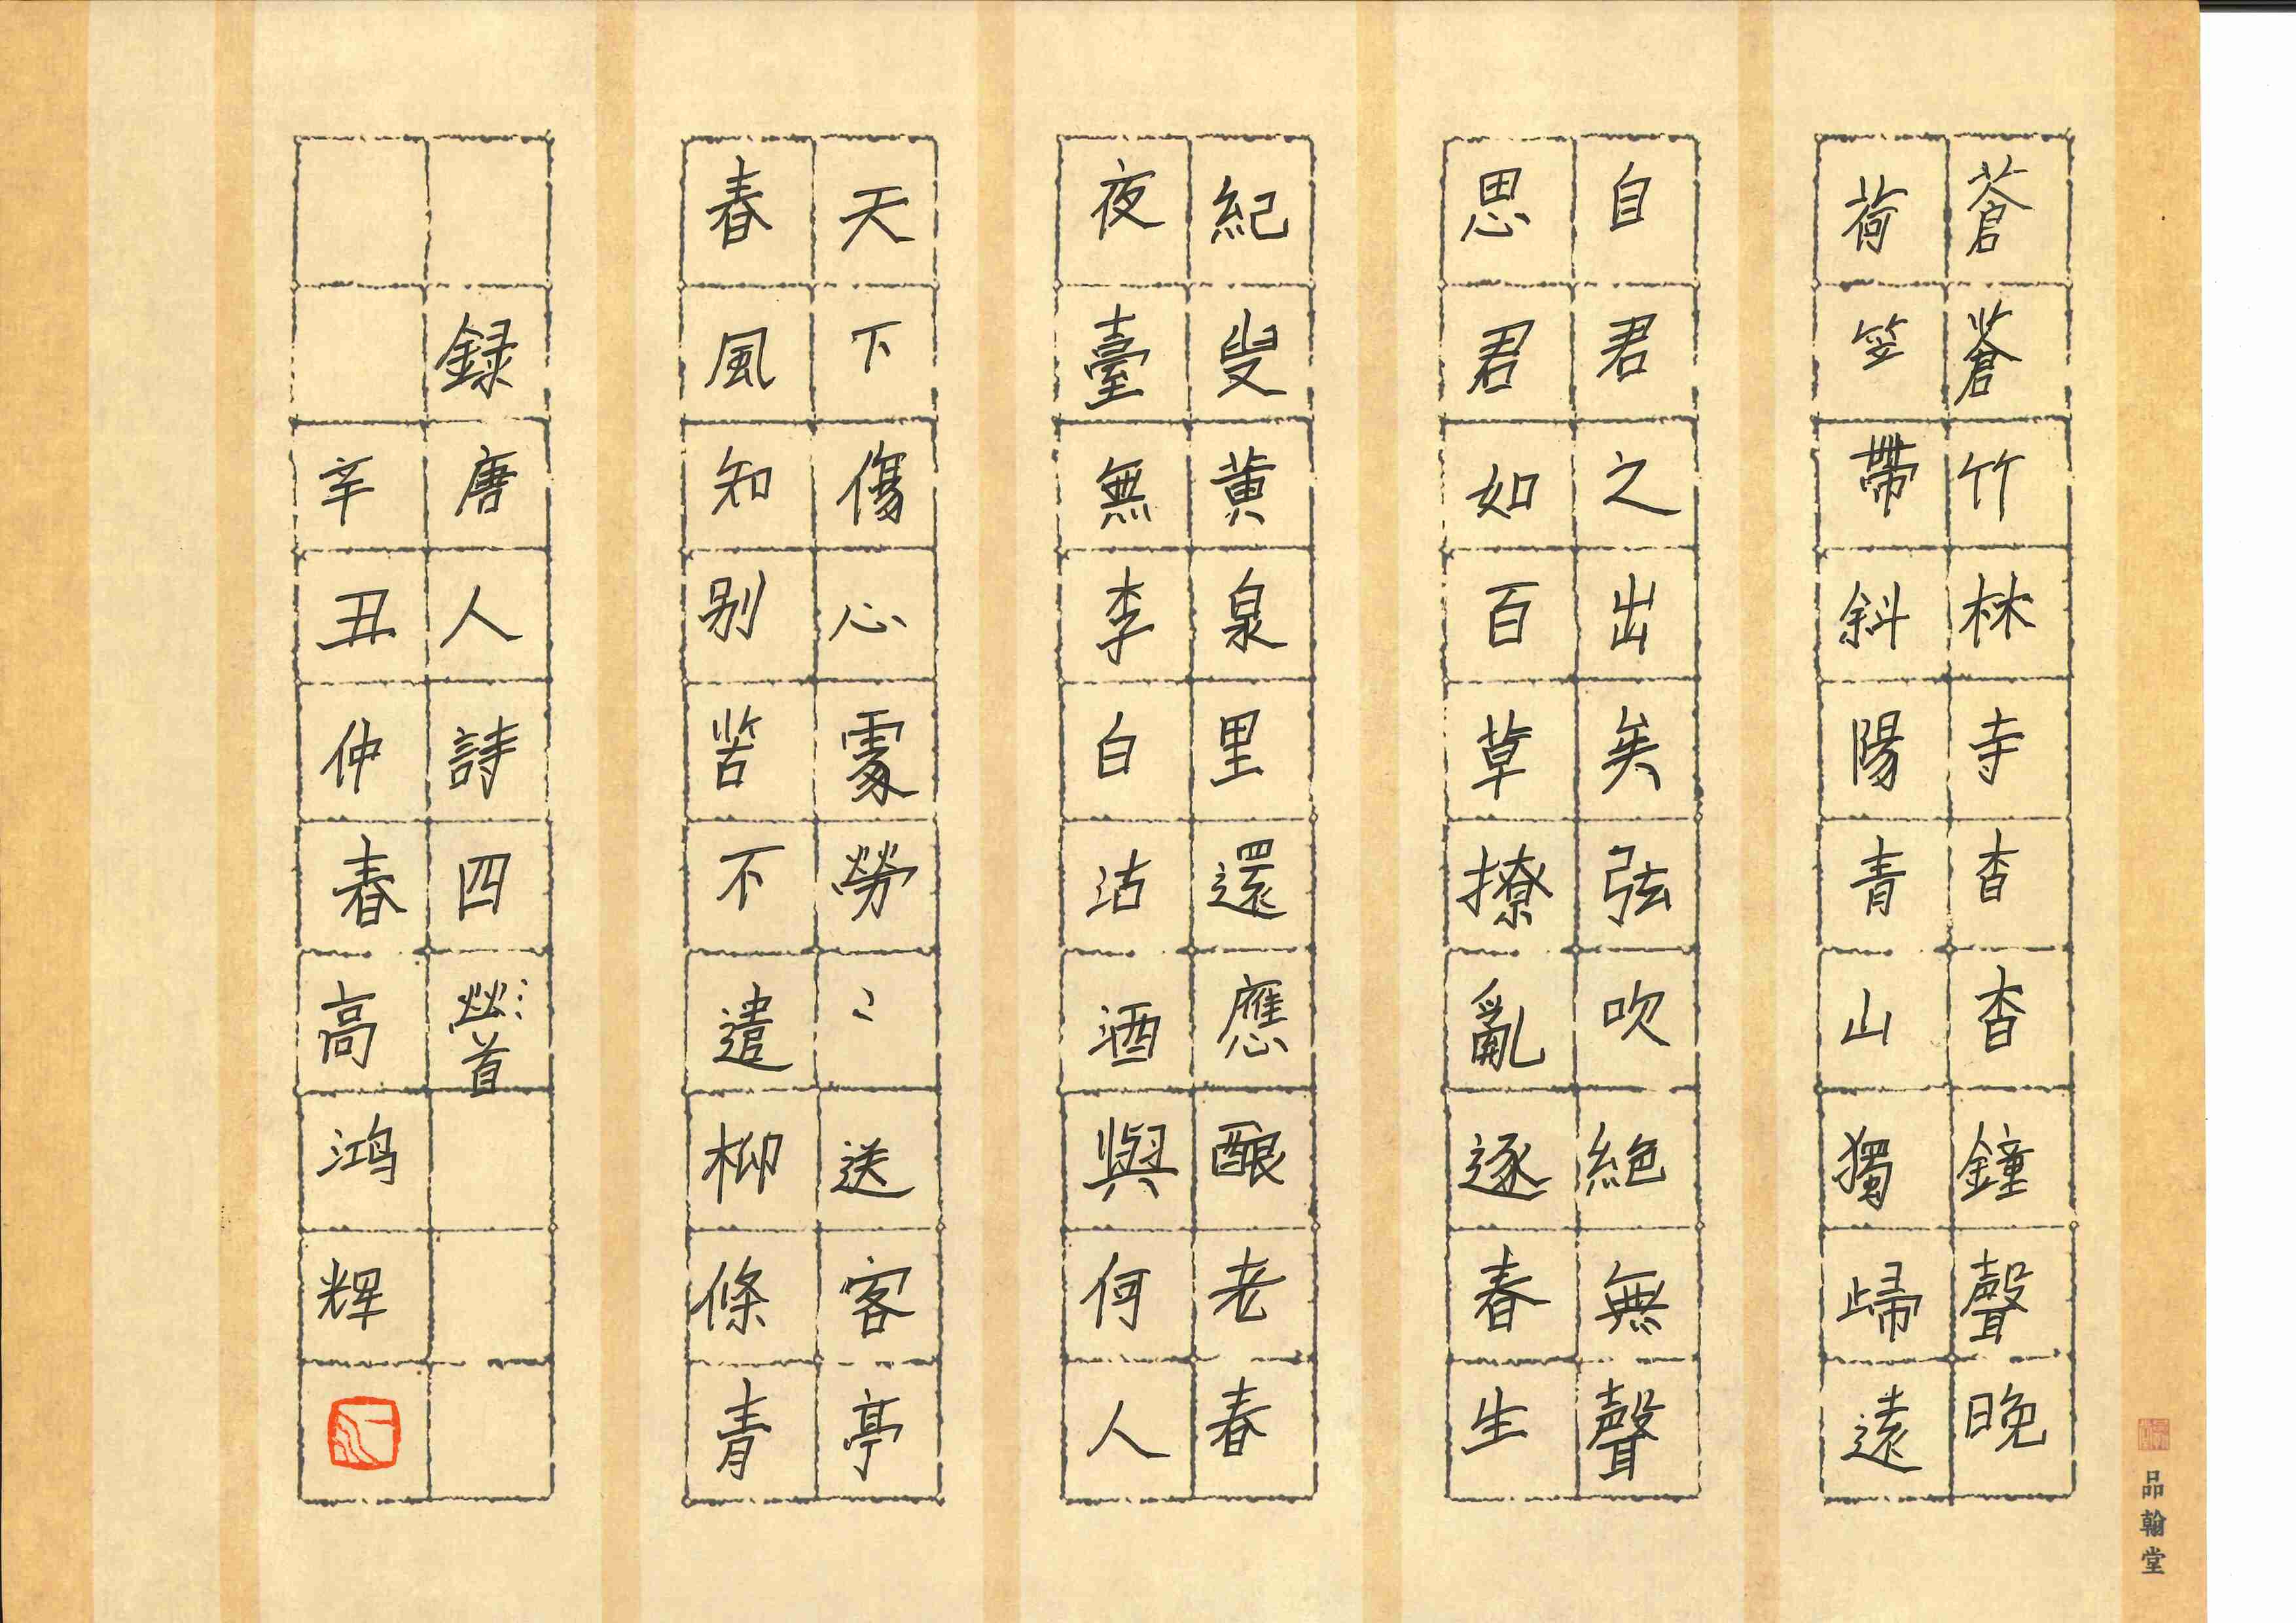 蒼蒼竹林寺杳杳鐘聲晚
荷笠帶斜陽青山獨歸遠
自君之出矣弦吹絕無聲
思君如百草撩亂逐春生
紀叟黄泉里還應酿老春
夜臺無李白沽酒與何人
天下傷心處勞〻送客亭
春風知别苦不遣柳條青
録唐人詩四首
辛丑仲春高鸿辉
品翰堂